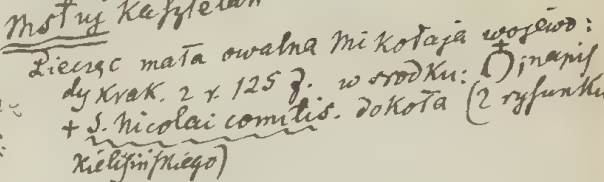 Mstuj Kasztelan
Pieczęc mała owalna Mikołaja wojewo:
dy Krak. z r. 125 . w srodku: ; napis
+ S. Nicolai comitis. dokoła (z rysunku
Kielisińskiego)